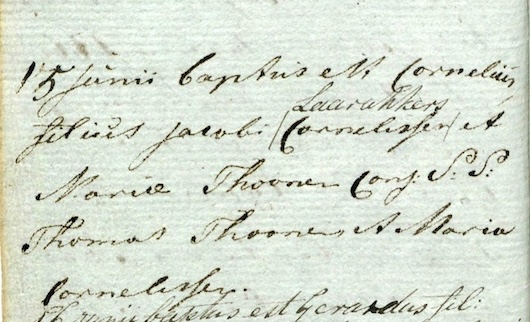 15 Junii baptus est Cornelius
Laarakkers
filius Jacobi (Cornelissen) et
Mariæ Thoonen Conj: S: S:
Thomas Thoonen et Maria
Cornelissen.
junii baptus est Gerardus fil: